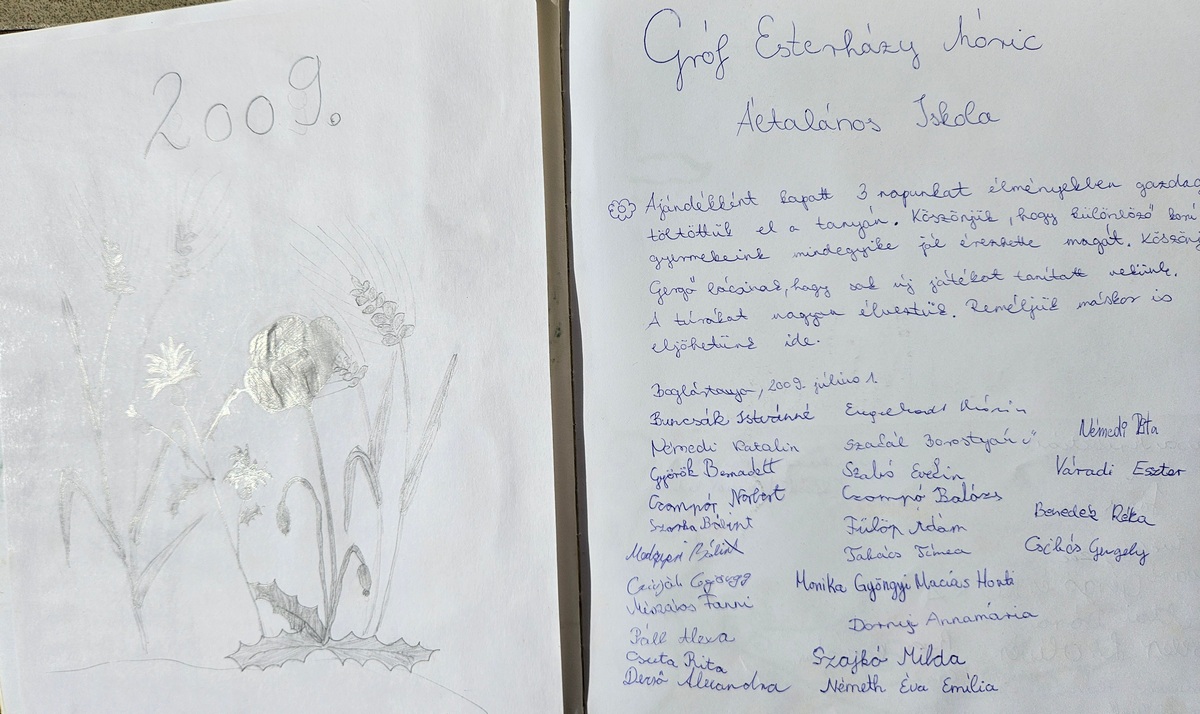 2009.
Gróf Esterházy Móric
Általános Iskola
Ajándékként kapott 3 napunkat élményekben gazdag
töltöttük el a tanyán. Köszönjük, hogy különböző korú
gyermekeink mindegyike jól érezhette magát. Köszönj
Gergő bácsinak, hogy sok új játékot tanított nekünk.
A túrákat nagyon élveztük. Reméljük máskor is
eljöhetünk ide.
Boglártanya, 2009. július 1.
Buncsák Istvánné
Némedi Katalin Szafál Borostyán Némedi Rita
Györök Bernadett Szabó Evelin Váradi Eszter
Czompó Norbert Czompó Balázs Benedek Réka
Bálint Fülöp Ádám
Bálint Takács Tímea Csikós Gergely
György Monika Gyöngyi Macías Honti
Mészáros Fanni Annamária
Páll Alexa
Csuta Rita Szajkó Milda
Dezső Alexandra Németh Éva Emília